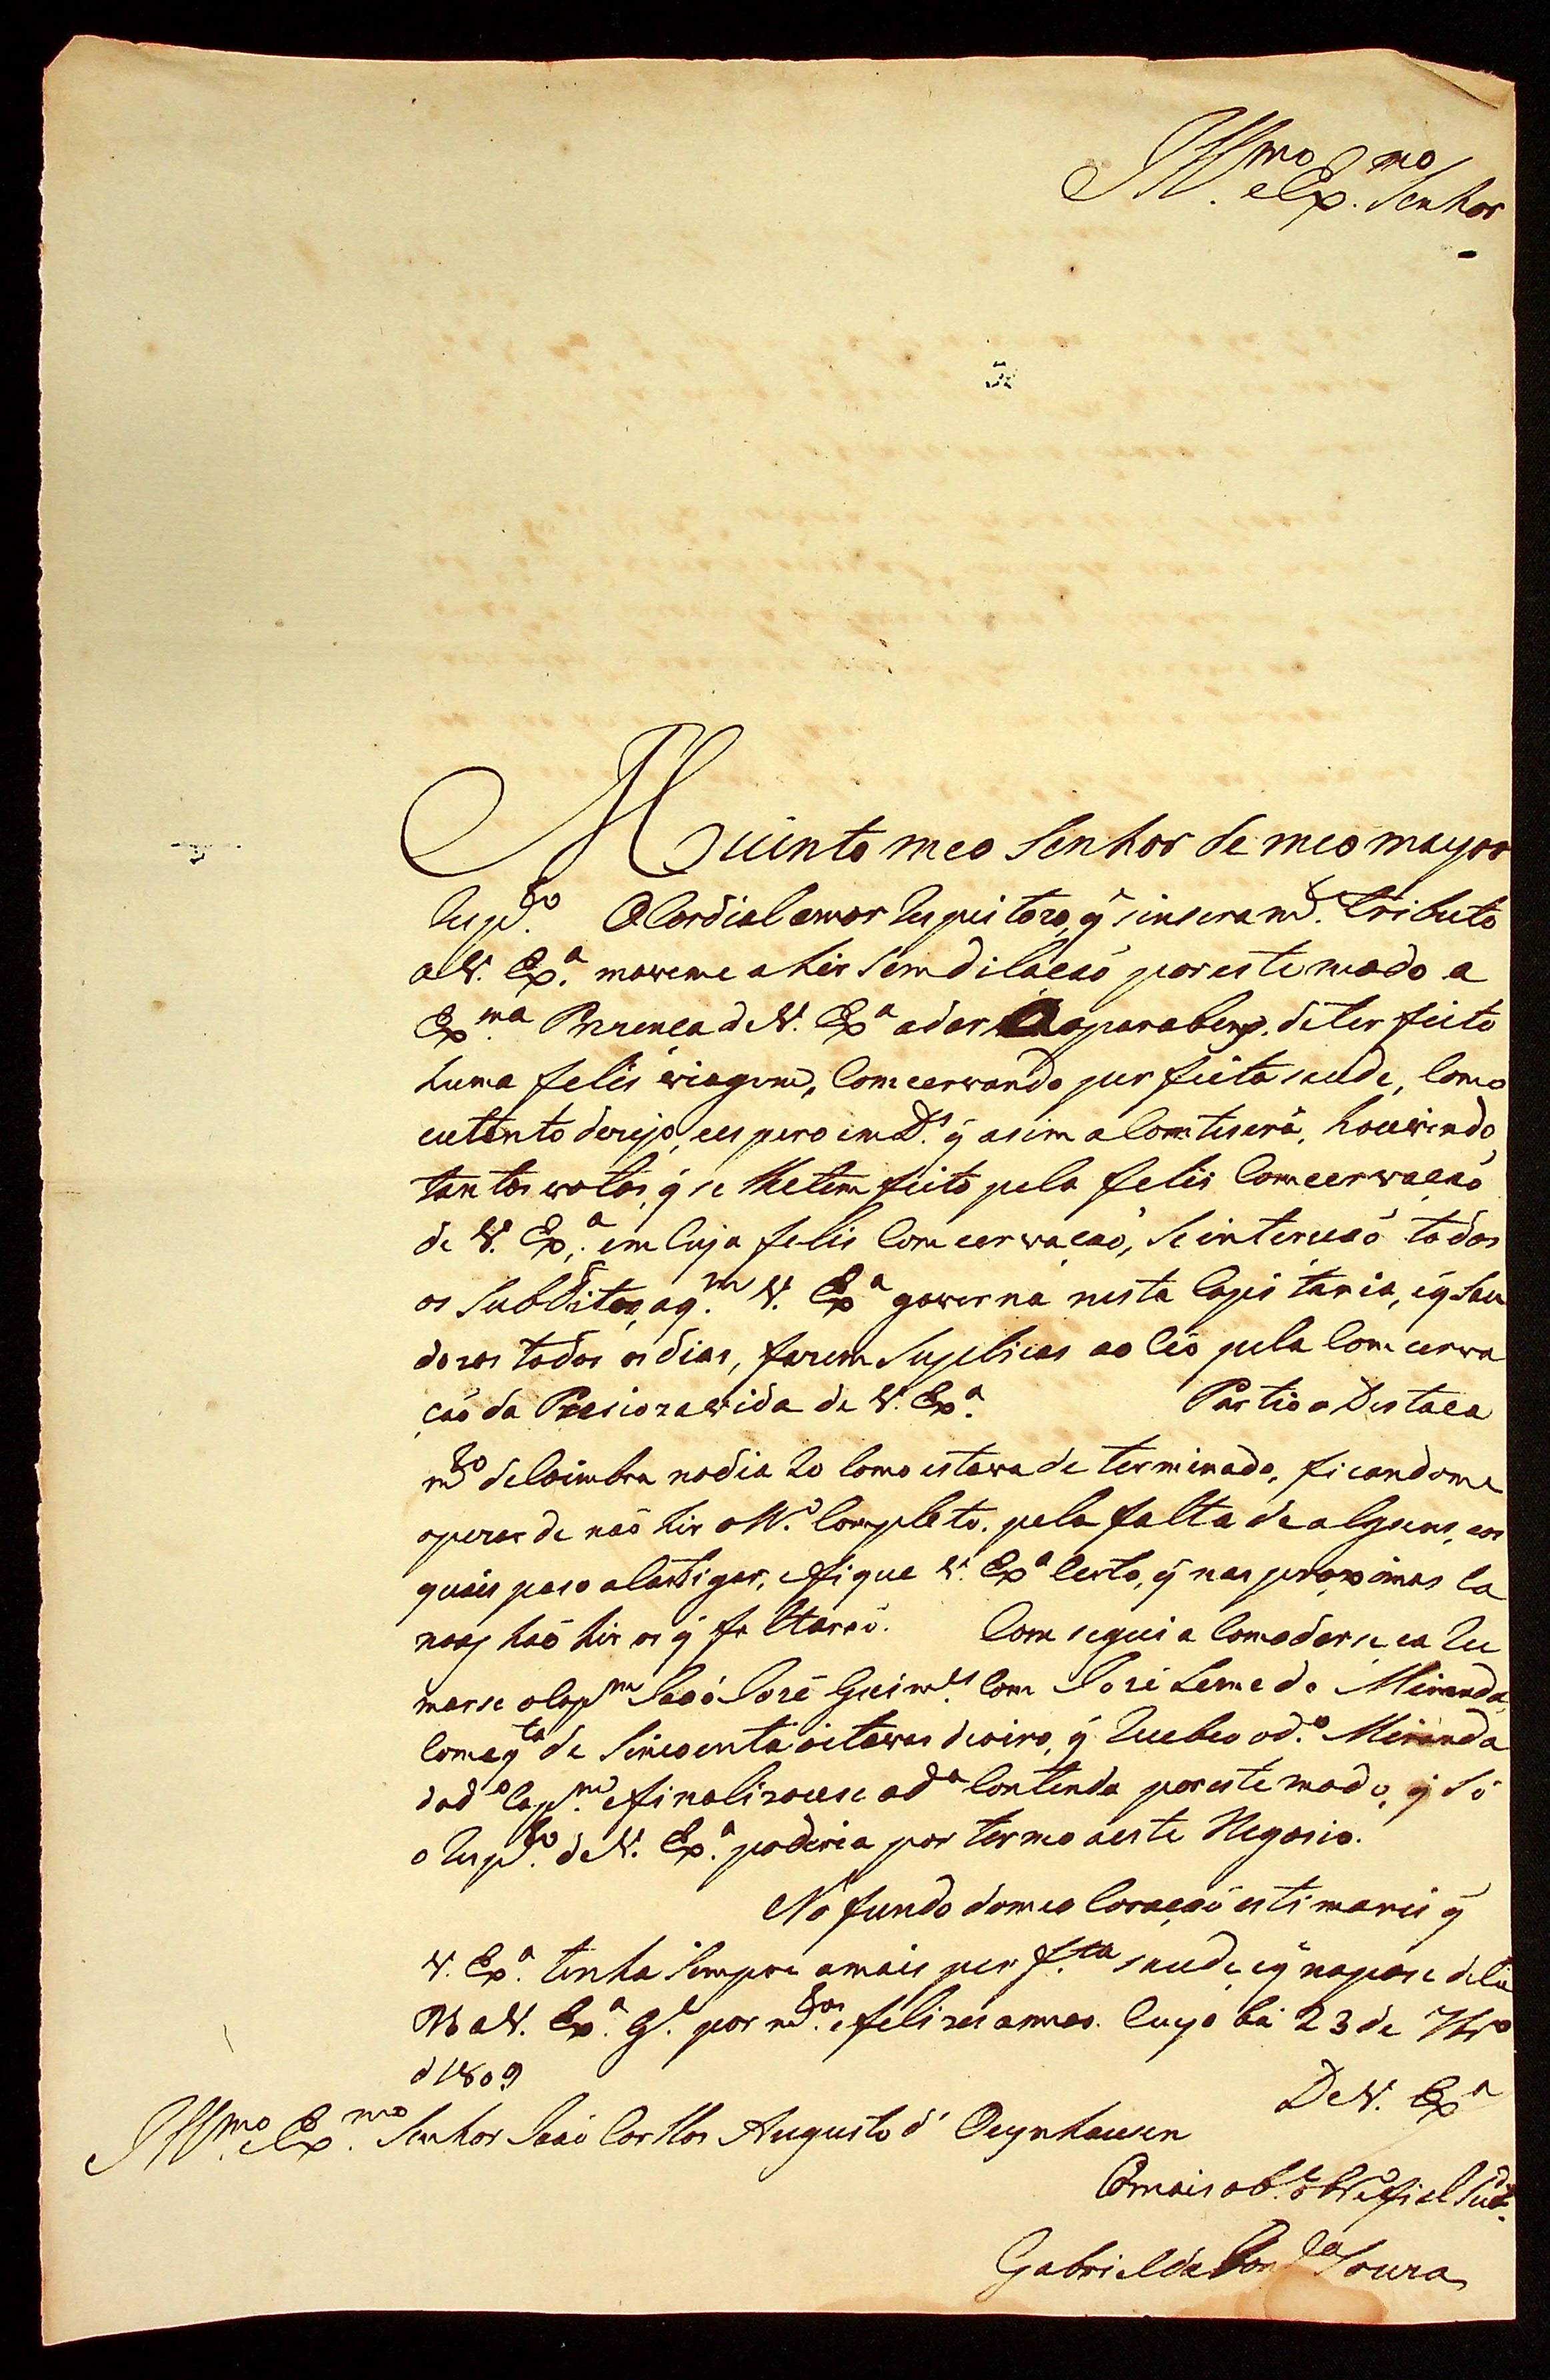 Ill.mo e Ex.mo Senhor
Muinto meo Senhor de meo mayor
Resp.to O Cordial amor Respeitozo, q̃ sinseram.te tributo
a V. Ex.a moveme a hir sem dilacaõ por este modo a
Ex.ma Prezenca de V. Ex.a a dar o aparabens, de ter feito
huma felis viagem, Comcervando perfeita saude, Como
eu tanto dezejo, e espero em D.s q̃ asim aComteserá, houvindo
tantos votos, q̃ se lhe tem feito pela felis Comcervacaõ
de V. Ex.a, em Cuja felis Comcervacaõ, Se interecaõ todos
os Subditos, aq.m V. Ex.a governa nesta Capitania, e q̃ Sau
dozos todos os dias, fazem Suplicas ao Ceo pela Comcerva
caõ da Preciozavida de V. Ex.a Partio o Destaca
m.to de Coimbra no dia 20 Como estava determinado, ficandome
o pezar de naõ hir o N.o Completo, pela falta de alguns, aos
quais paso a Castigar, e fique V. Ex.a Certo, q̃ nas proximas Ca
noas haõ hir os q̃ faltaraõ. Comsegui aComodarse ea Re
marse o Cap.m Joaõ Jozé Guim.es Com Jozé Leme do Miranda
Com a q.ta de Sincoenta oitavas de oiro, q̃ Recebeo o d.o Miranda
do d.o Cap.m e finalizouse a d.a Contenda por este modo, q̃ Só
o Resp.to de V. Ex.a poderia por termo a este Negosio.
No fundo do meo Coracaõ estimarei q̃
V. Ex.a tenha Sempre a mais perf.ta saude e q̃
a V. Ex.a G.e por m.tos e felizes annos. Cuyabá 23 de 7br.o
d 1809
De V. Ex.a
Ill.mo e Ex.mo Senhor Joaõ Carllos Augusto d' Oeynhausen
O mais ob.e e fiel Sud.
Gabriel da Fon.ca Souza